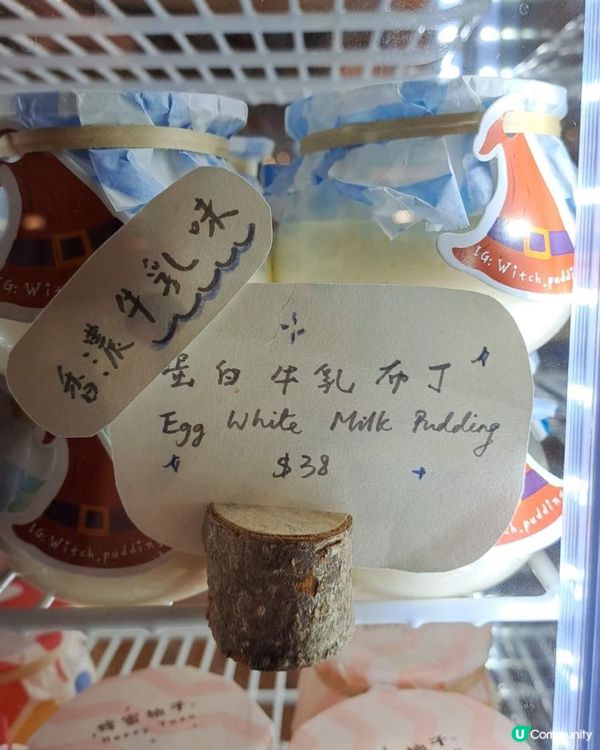 香濃牛乳味
蛋白牛乳布丁
Egg White Milk Pudding
$38
IG: Witch.puddi
IG: Wit
IG: Witch.puddin
h.puddin
蜂蜜柚子
Honey Yuzu
U Community